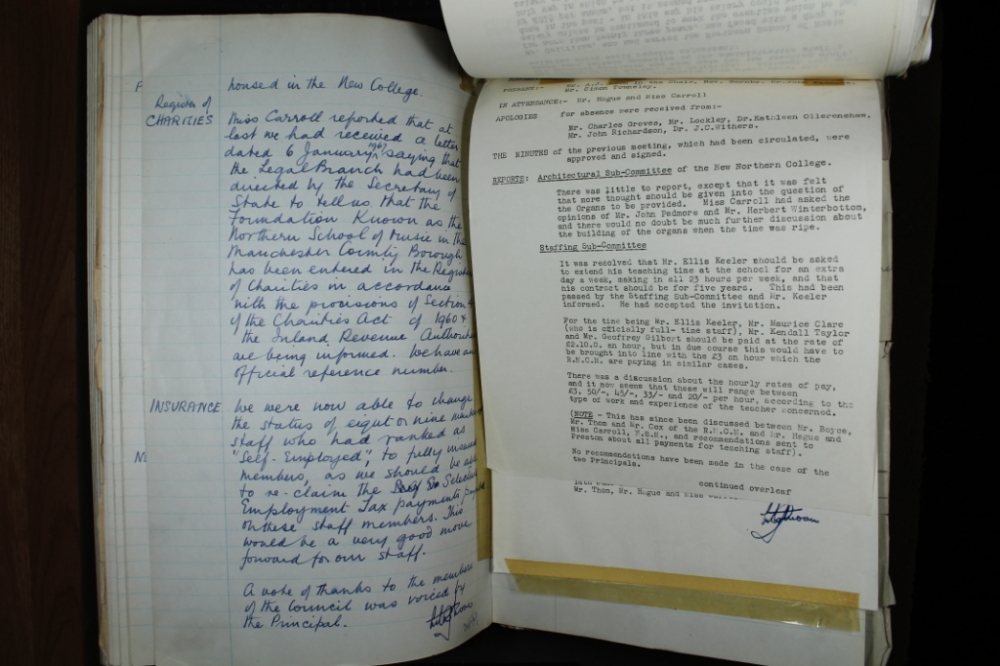 housed in the New College.
Register of
CHARITIES
Miss Carroll reported that at
last we had received a letter
dated 6 January 1967 saying that
the Legal Branch had been
directed by the Secretary of
State to tell us that the
Foundation Known as the
Northern School of Music in the
Manchester County Borough
has been entered in the Register
of Charities in accordance
with the provisions of Section
of the Charities Act of 1960 &
the Inland Revenue Authorities
are being informed. We have an
official reference number.
INSURANCE
We were now able to change
the status of eight or nine
staff who had ranked as
"Self-Employed", to fully
members, as we should be able
to re-claim the Selective
Employment Tax payments
on these staff members. This
would be a very good move
forward for our staff.
A vote of thanks to the members
of the Council was voiced by
the Principal.
F
M
PRESENT:- in the Chair,
Mr. Simon Towneley.
IN ATTENDANCE:- Mr. Hague and Miss Carroll
APOLOGIES for absence were received from:-
Mr. Charles Groves, Mr. Lockley, Dr. Kathleen Ollerenshaw,
Mr. John Richardson, Dr. J.C.Withers.
THE MINUTES of the previous meeting, which had been circulated, were
approved and signed.
REPORTS: Architectural Sub-Committee of the New Northern College.
There was little to report, except that it was felt
that more thought should be given into the question of
the Organs to be provided. Miss Carroll had asked the
opinions of Mr. John Pedmore and Mr. Herbert Winterbottom,
and there would no doubt be much further discussion about
the building of the organs when the time was ripe.
Staffing Sub-Committee
It was resolved that Mr. Ellis Keeler should be asked
to extend his teaching time at the school for an extra
day a week, making in all 23 hours per week, and that
his contract should be for five years. This had been
passed by the Staffing Sub-Committee and Mr. Keeler
informed. He had accepted the invitation.
For the time being Mr. Ellis Keeler, Mr. Maurice Clare
(who is officially full-time staff), Mr. Kendall Taylor
and Mr. Geoffrey Gilbert should be paid at the rate of
£2.10.0. an hour, but in due course this would have to
be brought into line with the £3 an hour which the
R.M.C.M. are paying in similar cases.
There was a discussion about the hourly rates of pay,
and it now seems that these will range between
£3, 50/-, 45/-, 33/- and 20/- per hour, according to the
type of work and experience of the teacher concerned.
(NOTE - This has since been discussed between Mr. Boyce,
Mr. Thom and Mr. Cox of the R.M.C.M. and Mr. Hague and
Miss Carroll, N.S.M., and recommendations sent to
Preston about all payments for teaching staff).
No recommendations have been made in the case of the
two Principals.
continued overleaf
Mr. Thom, Mr. Hague and Miss